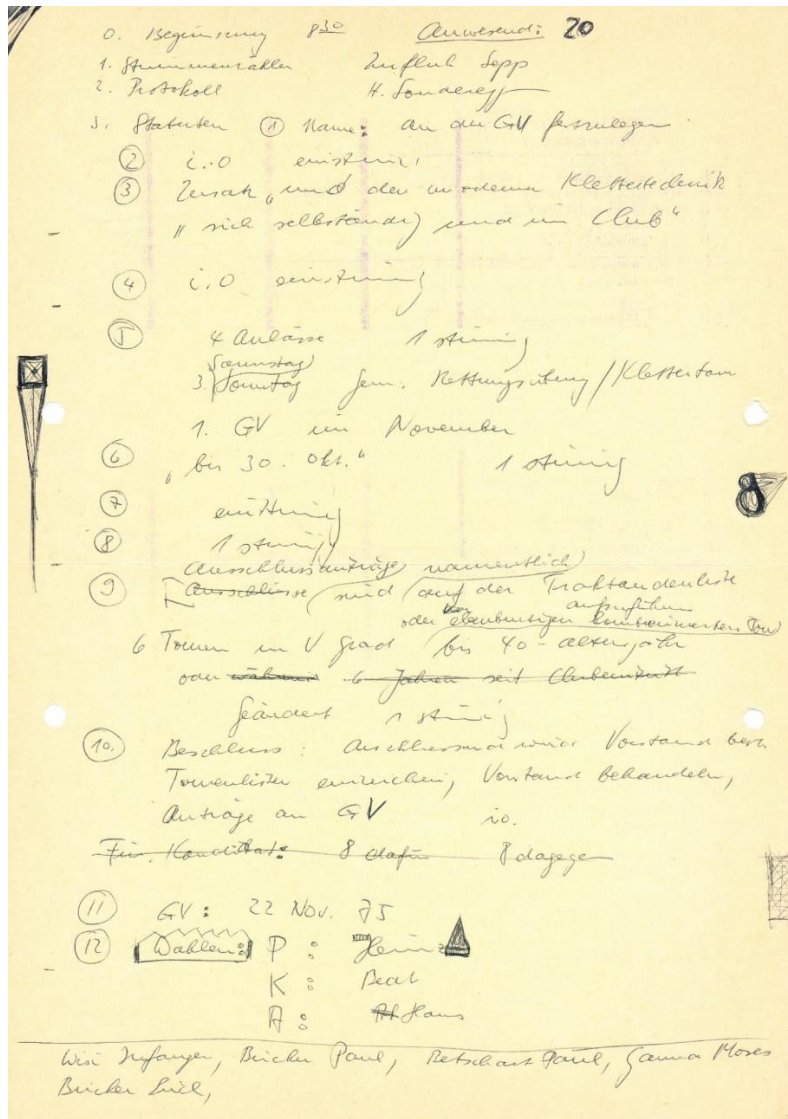 0. Begrüssung 8 30 Anwesend: 20
1. Stimmenzähler Zurfluh Sepp
2. Protokoll H. Sonderegg
3. Statuten ① Name: an der GV festzulegen.
② i.O einstim.
③ Zusatz „und der modernen Klettertechnik
„sich selbständig und im Club“
④ i.O einstimmig
⑤ 4 Anlässe 1 stimmig
Samstag
3. Sonntag Gem. Rettungsübung/Klettertour
1. GV im November
⑥ „bis 30. Okt.“ 1 stimmig
⑦ einstimmig
⑧ 1 stimmig
Ausschlussanträge namentlich
⑨ [Ausschlüsse sind auf der Traktandenliste
aufzuführen
oder ebenbürtigen kombinierten Tour
6 Touren im V Grad bis 40-altersjahr
oder während 6 Jahren seit Clubeintritt
Geändert 1 stimmig
10. Beschluss: Anschliessend wird Vorstand best.
Tourenlisten einreichen, Vorstand behandeln,
Anträge an GV io.
Für. Kandidat: 8 dafür 8 dagegen
⑪ GV: 22 Nov. 75
⑫ Wahlen: P: Heinz
K: Beat
A: Hans
Wisi Infanger, Bricker Paul, Betschart Paul, Gamma Moses
Bricker